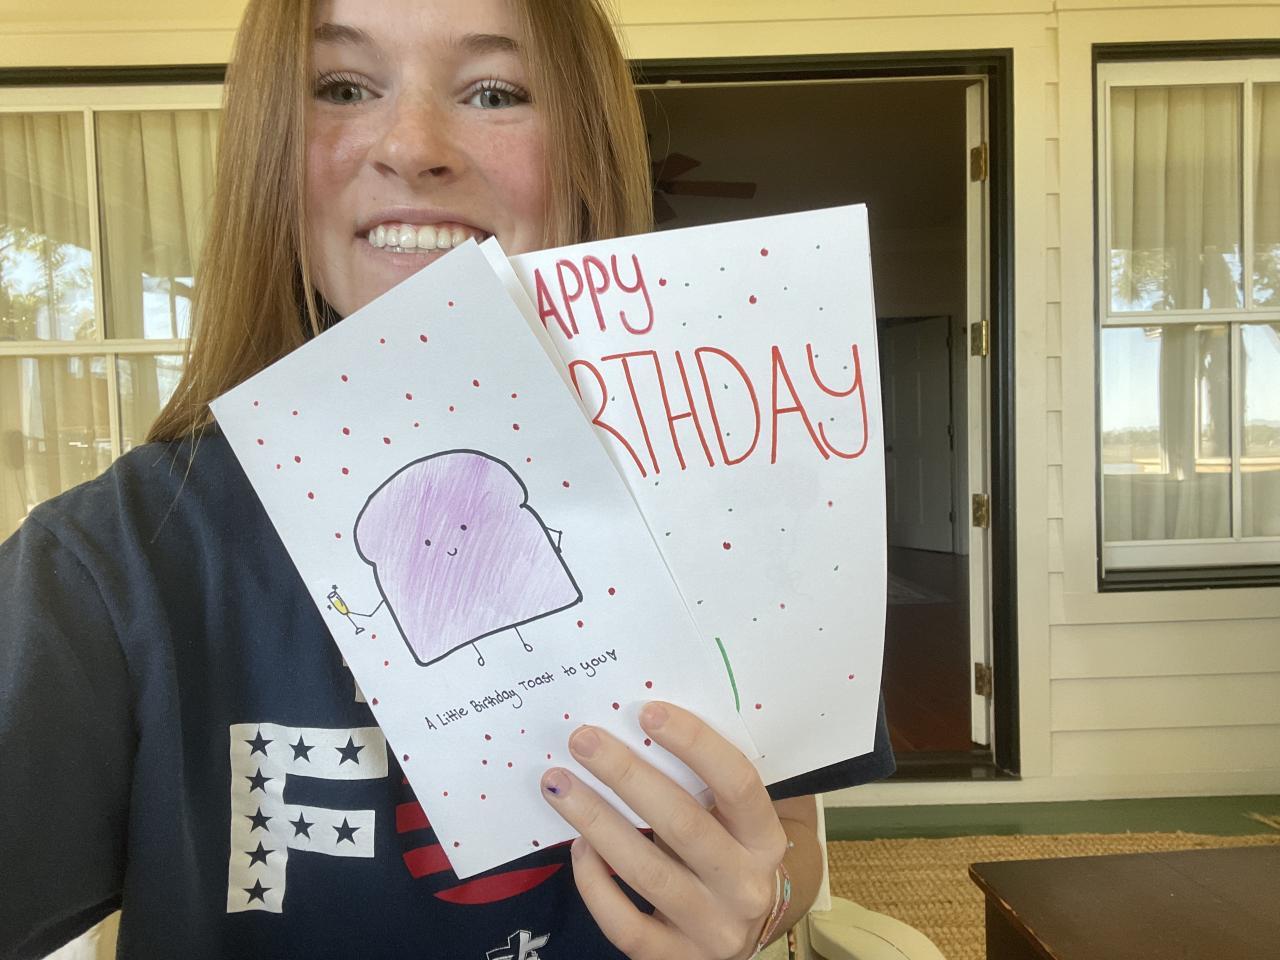 APPY
RTHDAY
A Little Birthday Toast to you♥
F